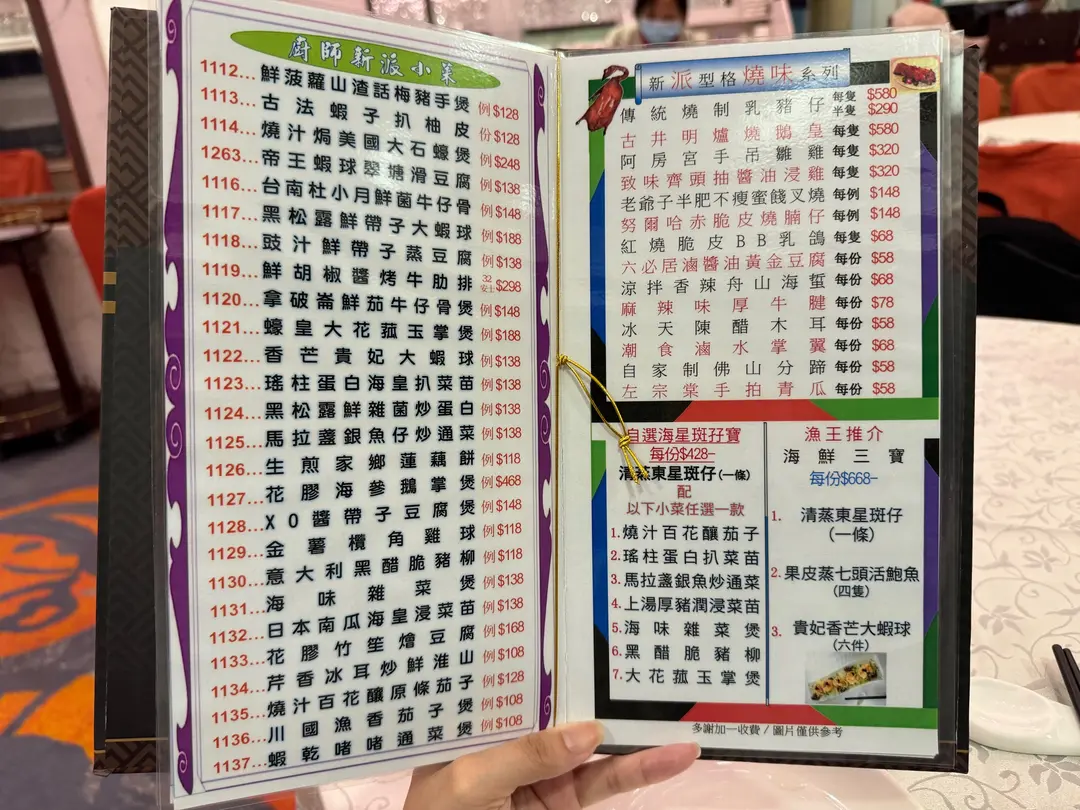 廚師新派小菜
1112...鮮菠蘿山渣話梅豬手煲 例$128
1113...古法蝦子扒柚皮 份$128
1114...燒汁焗美國大石蠔煲 例$248
1263...帝王蝦球翠塘滑豆腐 例$138
1116...台南杜小月鮮菌牛仔骨 例$148
1117...黑松露鮮帶子大蝦球 例$188
1118...豉汁鮮帶子蒸豆腐 例$138
1119...鮮胡椒醬烤牛肋排 32安士$298
1120...拿破崙鮮茄牛仔骨煲 例$148
1121...蠔皇大花菰玉掌煲 例$188
1122...香芒貴妃大蝦球 例$138
1123...瑤柱蛋白海皇扒菜苗 例$138
1124...黑松露鮮雜菌炒蛋白 例$138
1125...馬拉盞銀魚仔炒通菜 例$138
1126...生煎家鄉蓮藕餅 例$118
1127...花膠海參鵝掌煲 例$468
1128...XO醬帶子豆腐煲 例$148
1129...金薯欖角雞球 例$118
1130...意大利黑醋脆豬柳 例$118
1131...海味雜菜煲 例$138
1132...日本南瓜海皇浸菜苗 例$138
1133...花膠竹笙燴豆腐 例$168
1134...芹香冰耳炒鮮淮山 例$108
1135...燒汁百花釀原條茄子 例$128
1136...川國漁香茄子煲 例$108
1137...蝦乾啫啫通菜煲 例$108
新派型格燒味系列
傳統燒制乳豬仔 每隻$580 半隻$290
古井明爐燒鵝皇 每隻$580
阿房宮手吊雛雞 每隻$320
致味齊頭抽醬油浸雞 每隻$320
老爺子半肥不瘦蜜餞叉燒 每例$148
努爾哈赤脆皮燒腩仔 每例$148
紅燒脆皮BB乳鴿 每隻$68
六必居滷醬油黃金豆腐 每份$58
涼拌香辣舟山海蜇 每份$68
麻辣味厚牛腱 每份$78
冰天陳醋木耳 每份$58
潮食滷水掌翼 每份$68
自家制佛山分蹄 每份$58
左宗棠手拍青瓜 每份$58
自選海星斑孖寶
每份$428-
清蒸東星斑仔(一條)
配
以下小菜任選一款
1.燒汁百花釀茄子
2.瑤柱蛋白扒菜苗
3.馬拉盞銀魚炒通菜
4.上湯厚豬潤浸菜苗
5.海味雜菜煲
6.黑醋脆豬柳
7.大花菰玉掌煲
漁王推介
海鮮三寶
每份$668-
1. 清蒸東星斑仔
(一條)
2.果皮蒸七頭活鮑魚
(四隻)
3. 貴妃香芒大蝦球
(六件)
多謝加一收費 / 圖片僅供參考